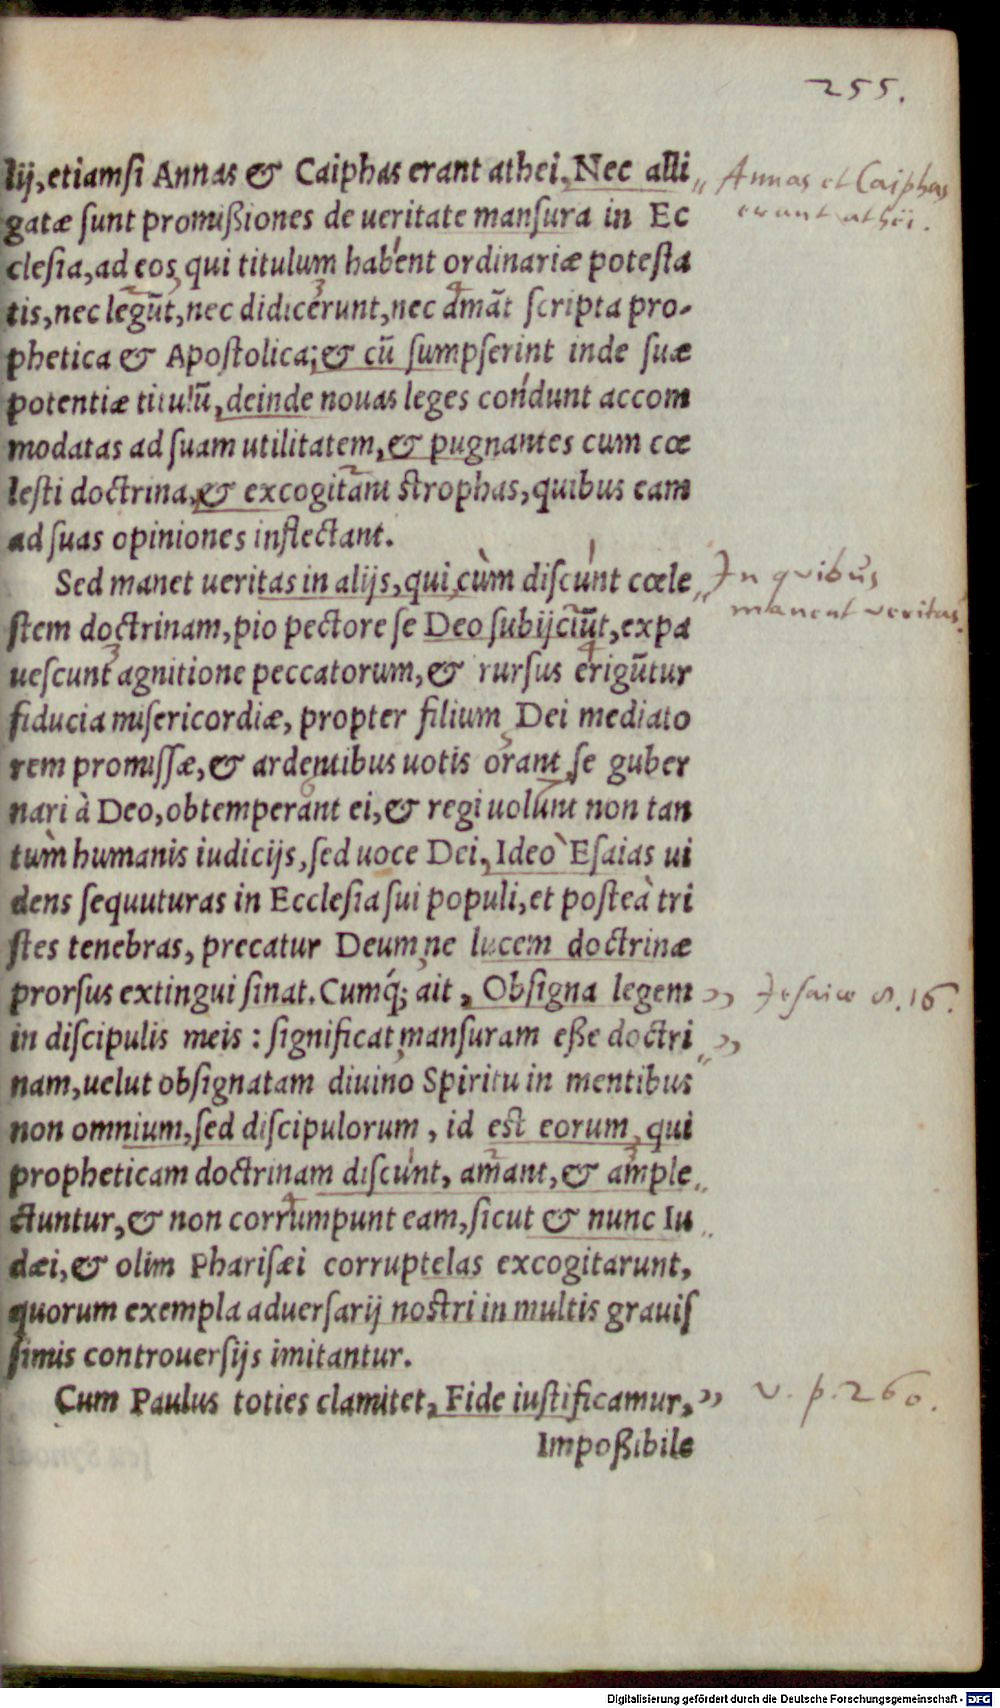 255.
lij, etiamsi Annas & Caiphas erant athei. Nec alli
Annas et Caiphas
erant athëi.
gatæ sunt promißiones de ueritate mansura in Ec
clesia, ad eos qui titulum habent ordinariæ potesta
tis, nec legūt, nec didicerunt, nec amāt scripta pro-
phetica & Apostolica; & cū sumpserint inde suæ
potentiæ titulū, deinde nouas leges condunt accom
modatas ad suam utilitatem, & pugnantes cum cœ
lesti doctrina, & excogitant strophas, quibus eam
ad suas opiniones inflectant.
Sed manet ueritas in alijs, qui cùm discunt cœle
In quibus
maneat veritas.
stem doctrinam, pio pectore se Deo subijciūt, expa
uescunt agnitione peccatorum, & rursus erigūtur
fiducia misericordiæ, propter filium Dei mediato
rem promissæ, & ardentibus uotis orant se guber
nari à Deo, obtemperant ei, & regi uolunt non tan
tùm humanis iudicijs, sed uoce Dei, Ideò Esaias ui
dens sequuturas in Ecclesia sui populi, et posteà tri
stes tenebras, precatur Deum, ne lucem doctrinæ
prorsus extingui sinat. Cumq́; ait, Obsigna legem
Jesaiæ 8. 16.
in discipulis meis : significat mansuram eße doctri
nam, uelut obsignatam diuino Spiritu in mentibus
non omnium, sed discipulorum, id est eorum, qui
propheticam doctrinam discunt, amant, & ample
ctuntur, & non corrumpunt eam, sicut & nunc Iu
dæi, & olim Pharisæi corruptelas excogitarunt,
quorum exempla aduersarij nostri in multis grauis
simis controuersijs imitantur.
Cum Paulus toties clamitet, Fide iustificamur,
v. p. 260.
Impoßibile
Digitalisierung gefördert durch die Deutsche Forschungsgemeinschaft - DFG